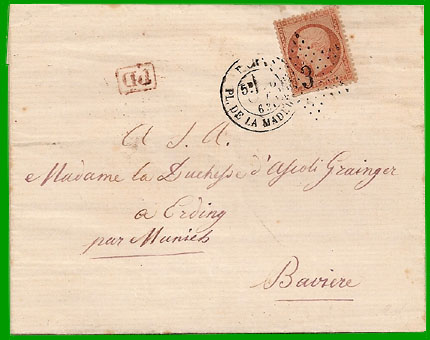 PD
PL. DE LA MADEL
3
A S. A.
Madame la Duchesse d'Ascoli Grainger
à Erding
par Munich
Bavière